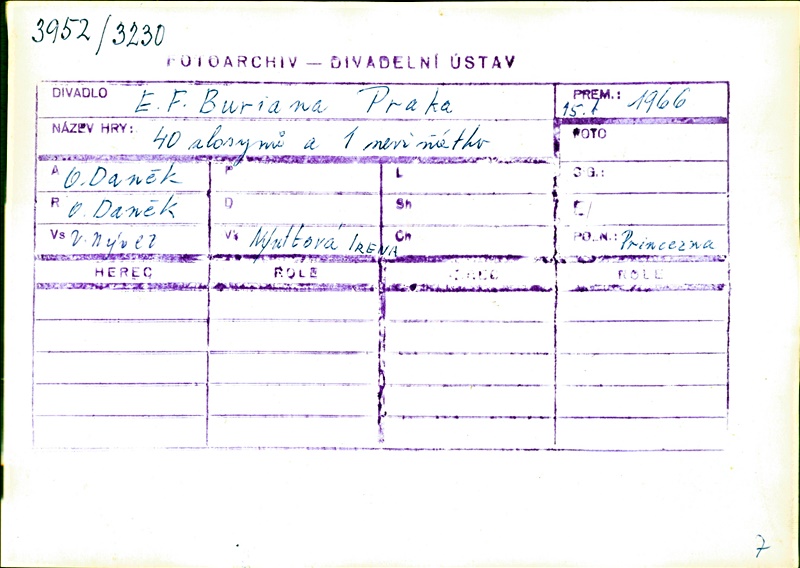 3952/3230
FOTOARCHIV — DIVADELNÍ ÚSTAV
DIVADLO E. F. Buriana Praha
PREM.: 15. 1966
NÁZEV HRY: 40 zlosynů a 1 neviňátko
FOTO
A O. Daněk
P
L
R O. Daněk
D
Sh
Vs V. Nývlt
Vk Irena
Ch
POZN.: Princezna
HEREC ROLE ROLE
7